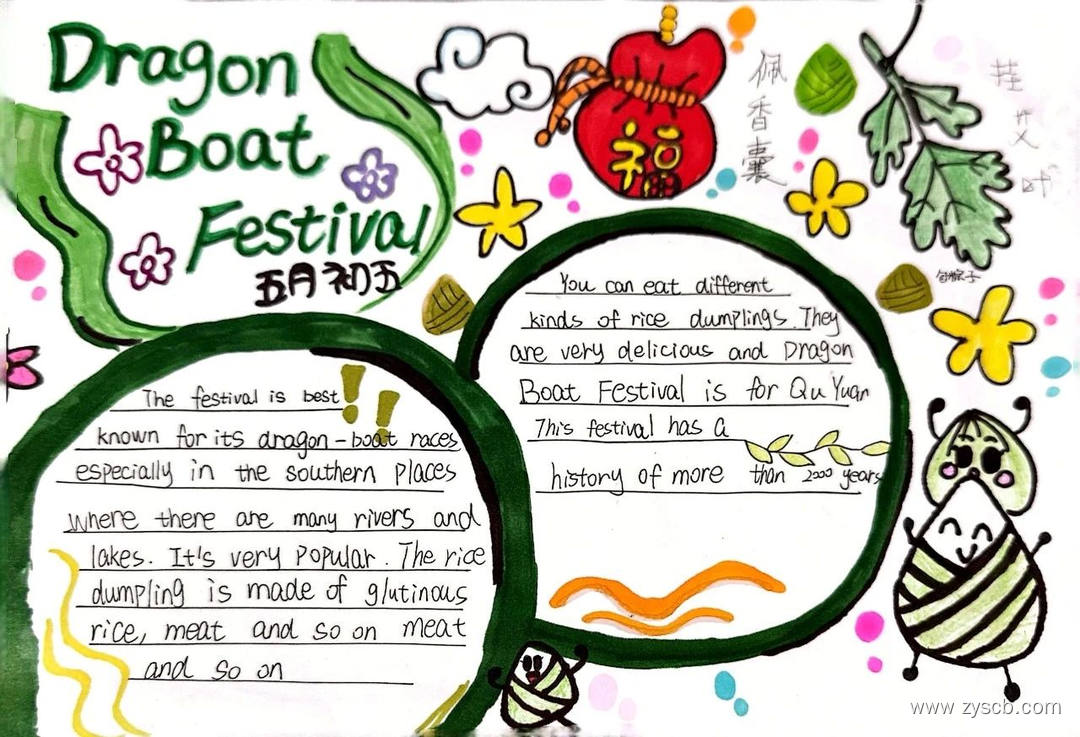 Dragon
Boat
Festival
五月初五
福
佩香囊
挂艾叶
包粽子
The festival is best
known for its dragon-boat races
especially in the southern places
where there are many rivers and
lakes. It's very popular. The rice
dumpling is made of glutinous
rice, meat and so on meat
and so on
You can eat different
kinds of rice dumplings. They
are very delicious and Dragon
Boat Festival is for Qu Yuan
This festival has a
history of more than 2000 years
www.zyscb.com